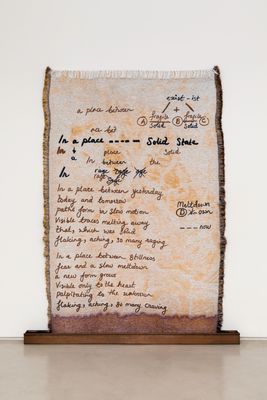 exist-ist
+
a place between
fragile fragile
A Solid B Solid C
In a place ----- Solid State
In place Solid
a In between the
In rage
In a place between yesterday
today and tomorrow
paths form in slow motion
Visible traces melting away
that, which was solid
flaking, aching, so many raging
Meltdown
--- now
In a place between Stillness
fear and a slow meltdown
a new form grows
Visible only to the heart
palpitating to the unknown
flaking, aching, so many craving